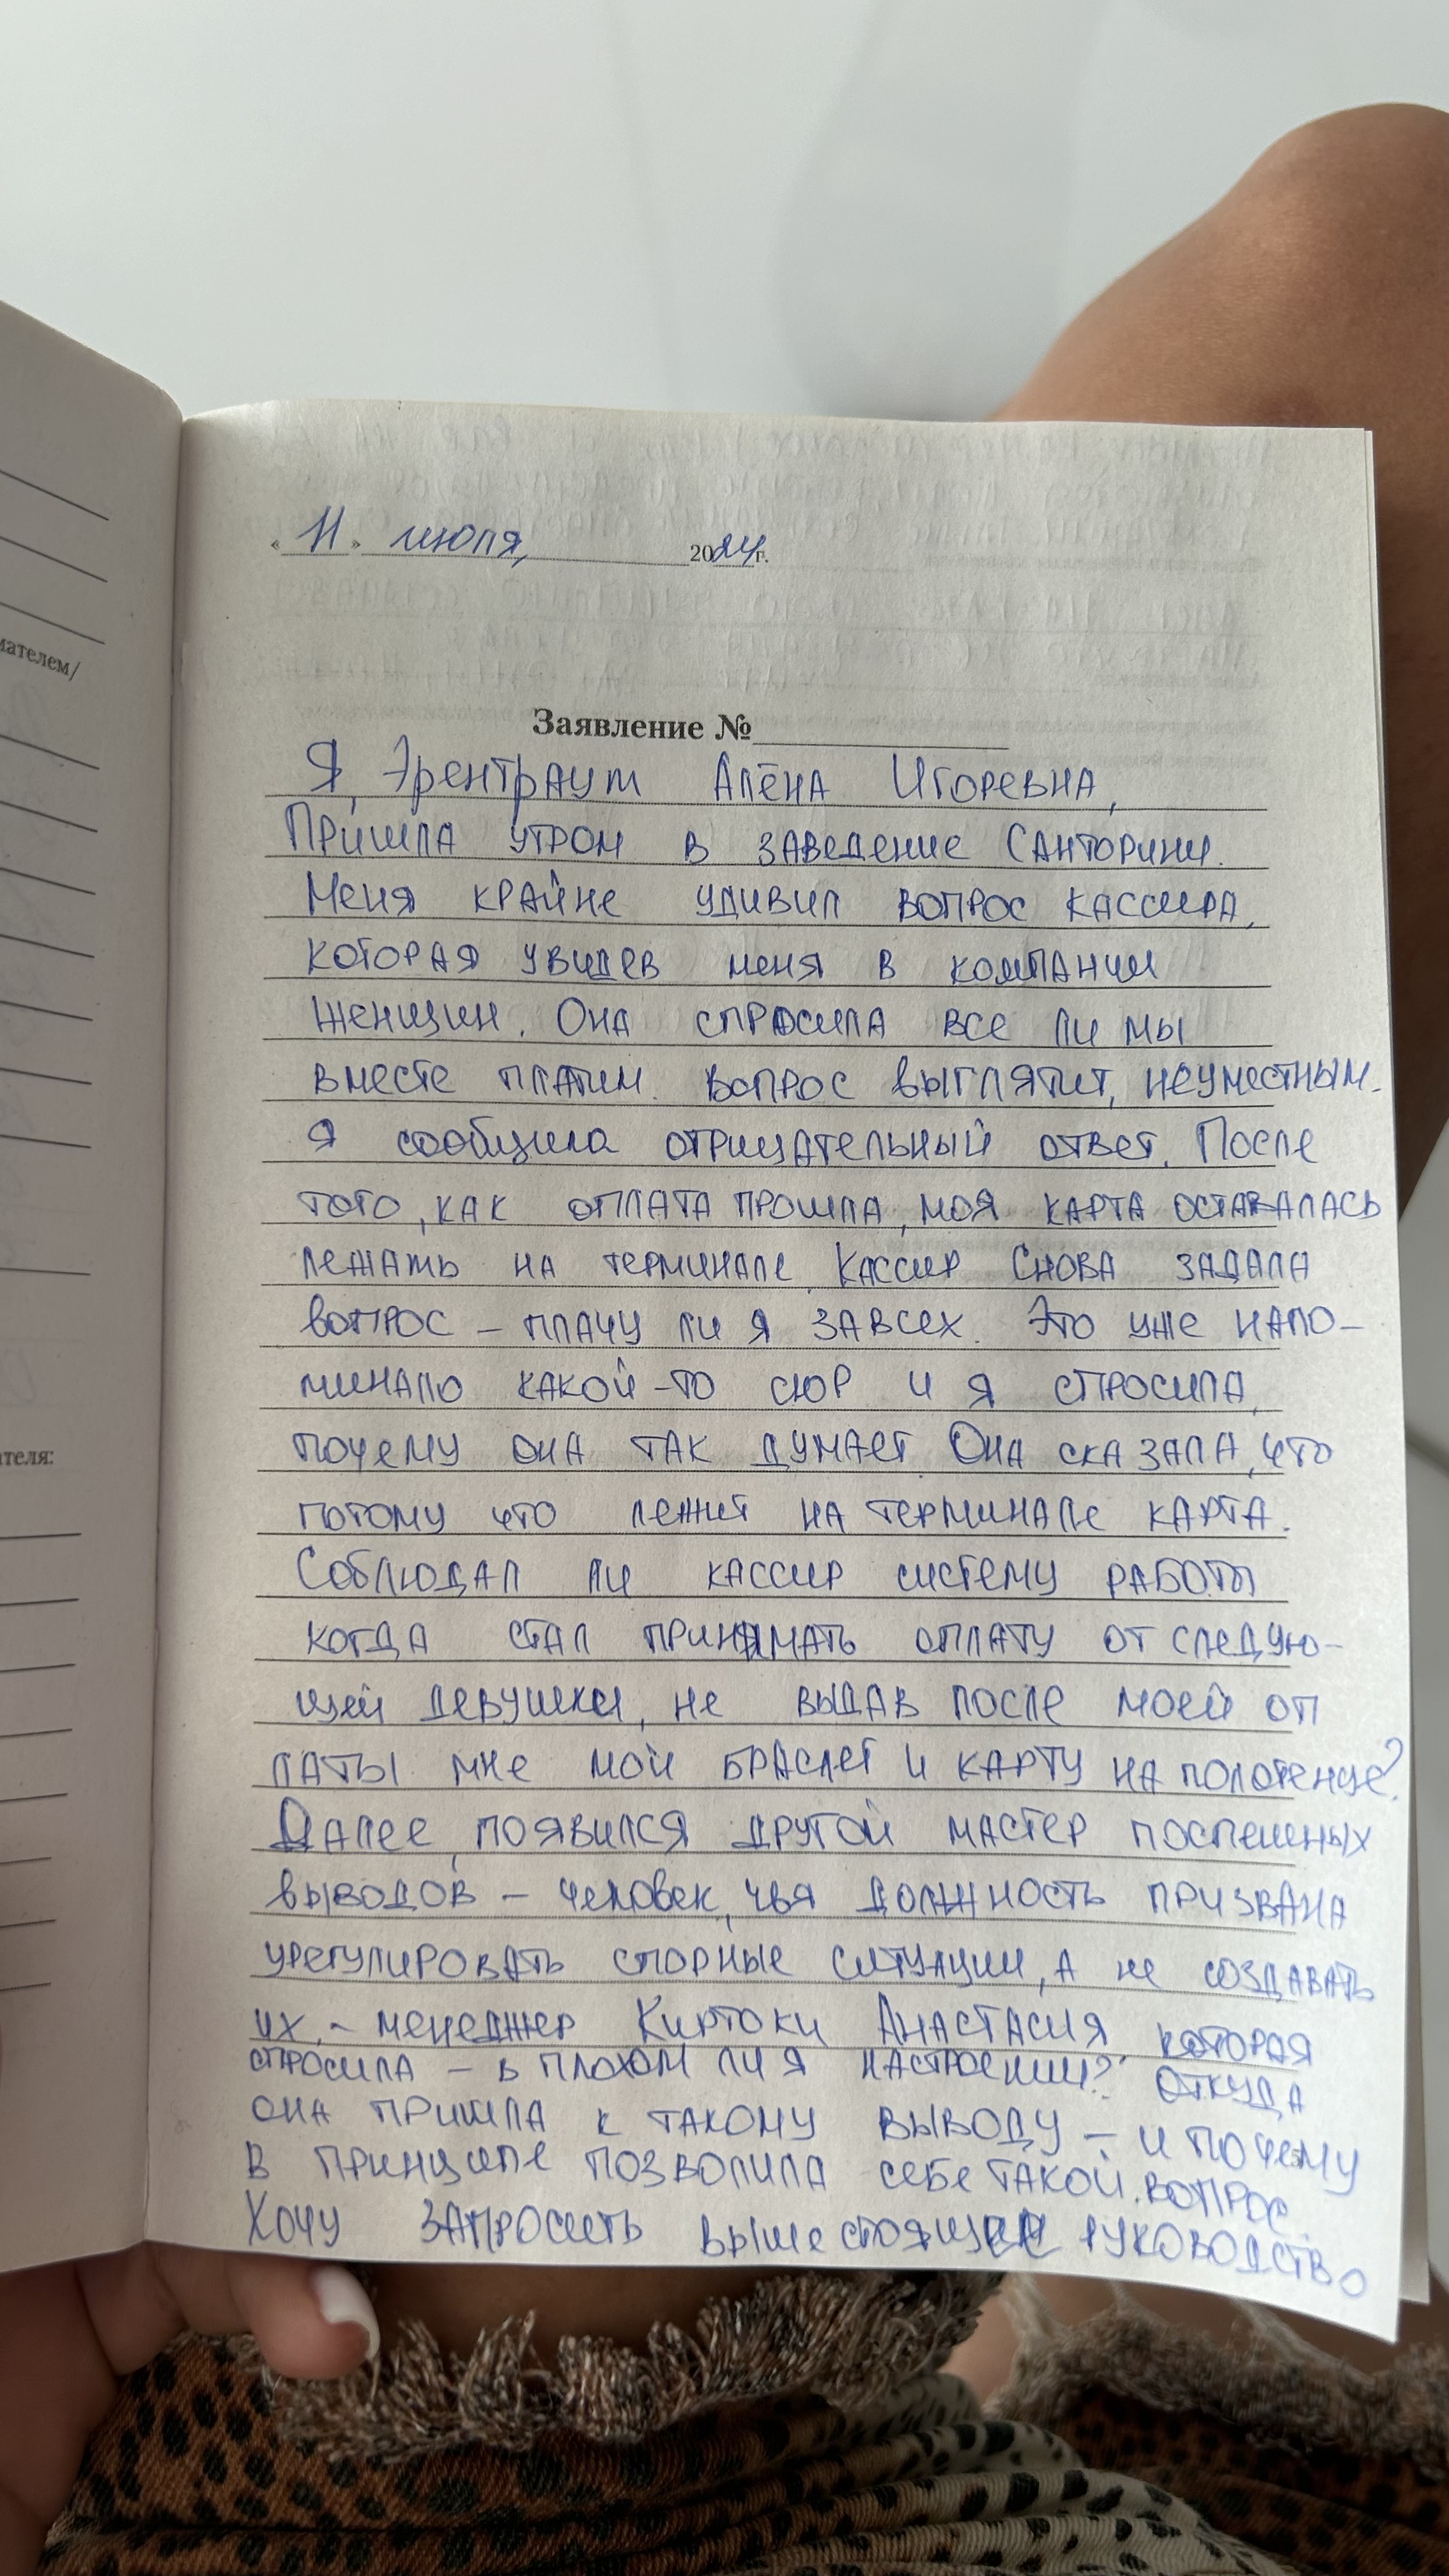 мателем/
ателя:
« 11 » июля, 2024 г.
Заявление №
Я, Эрентраут Алёна Игоревна,
Пришла утром в заведение Санторини.
Меня крайне удивил вопрос кассира,
которая увидев меня в компании
женщин. Она спросила все ли мы
вместе платим. Вопрос выглятит, неуместным.
Я сообщила отрицательный ответ. После
того, как оплата прошла, моя карта оставалась
лежать на терминале. Кассир снова задала
вопрос – плачу ли я за всех. Это уже напо–
минало какой-то сюр и я спросила,
почему она так думает. Она сказала, что
потому что лежит на терминале карта.
Соблюдал ли кассир систему работы
когда стал принимать оплату от следую–
щей девушки, не выдав после моей оп
латы мне мой браслет и карту на полотенце?
Далее, появился другой мастер поспешных
выводов – человек, чья должность призвана
урегулировать спорные ситуации, а не создавать
их. – менеджер Киртоки Анастасия, которая
спросила – в плохом ли я настроении? Откуда
она пришла к такому выводу – и почему
в принципе позволила себе такой вопрос.
Хочу запросить вышестоящее руководство